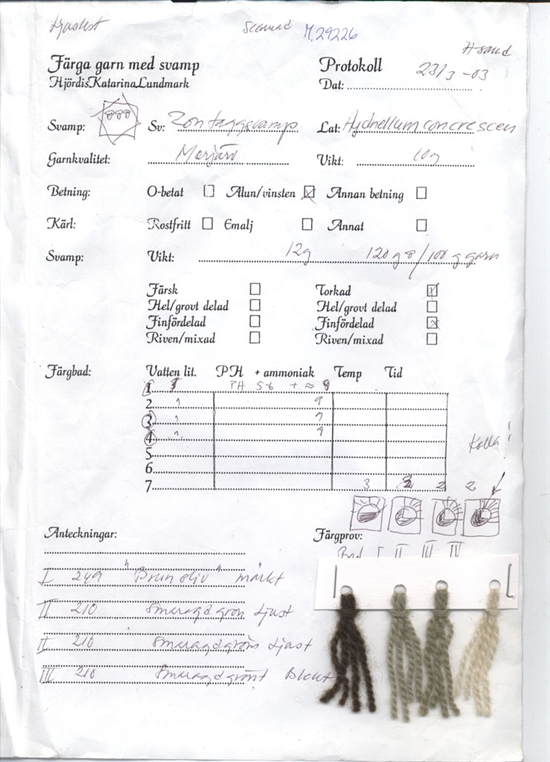 Ljusäkt Scannad M.29226
Färga garn med svamp Protokoll 23/3 -03
Hjördis Katarina Lundmark Dat:
Svamp: Sv: Zontaggsvamp Lat: Hydnellum concrescen
Garnkvalitet: Vikt: 10g
Betning: O-betat Alun/vinsten Annan betning
Kärl: Rostfritt Emalj Annat
Svamp: Vikt: 12g 120 g /100 g garn
Färsk Torkad
Hel/grovt delad Hel/grovt delad
Finfördelad Finfördelad
Riven/mixad Riven/mixad
Färgbad: Vatten lit. PH + ammoniak Temp Tid
1 1 PH 5-6 + ≈ 9
2 " 9
3 " 9
4 " 9
5 Kolla!
6
7 3 2 2 2
Anteckningar: Färgprov:
Bad I II III IV
I 249 "Brun oliv" mörkt
II 210 Smaragdgrön ljust
II 210 Smaragdgrön ljust
III 210 Smaragdgrönt Blekt